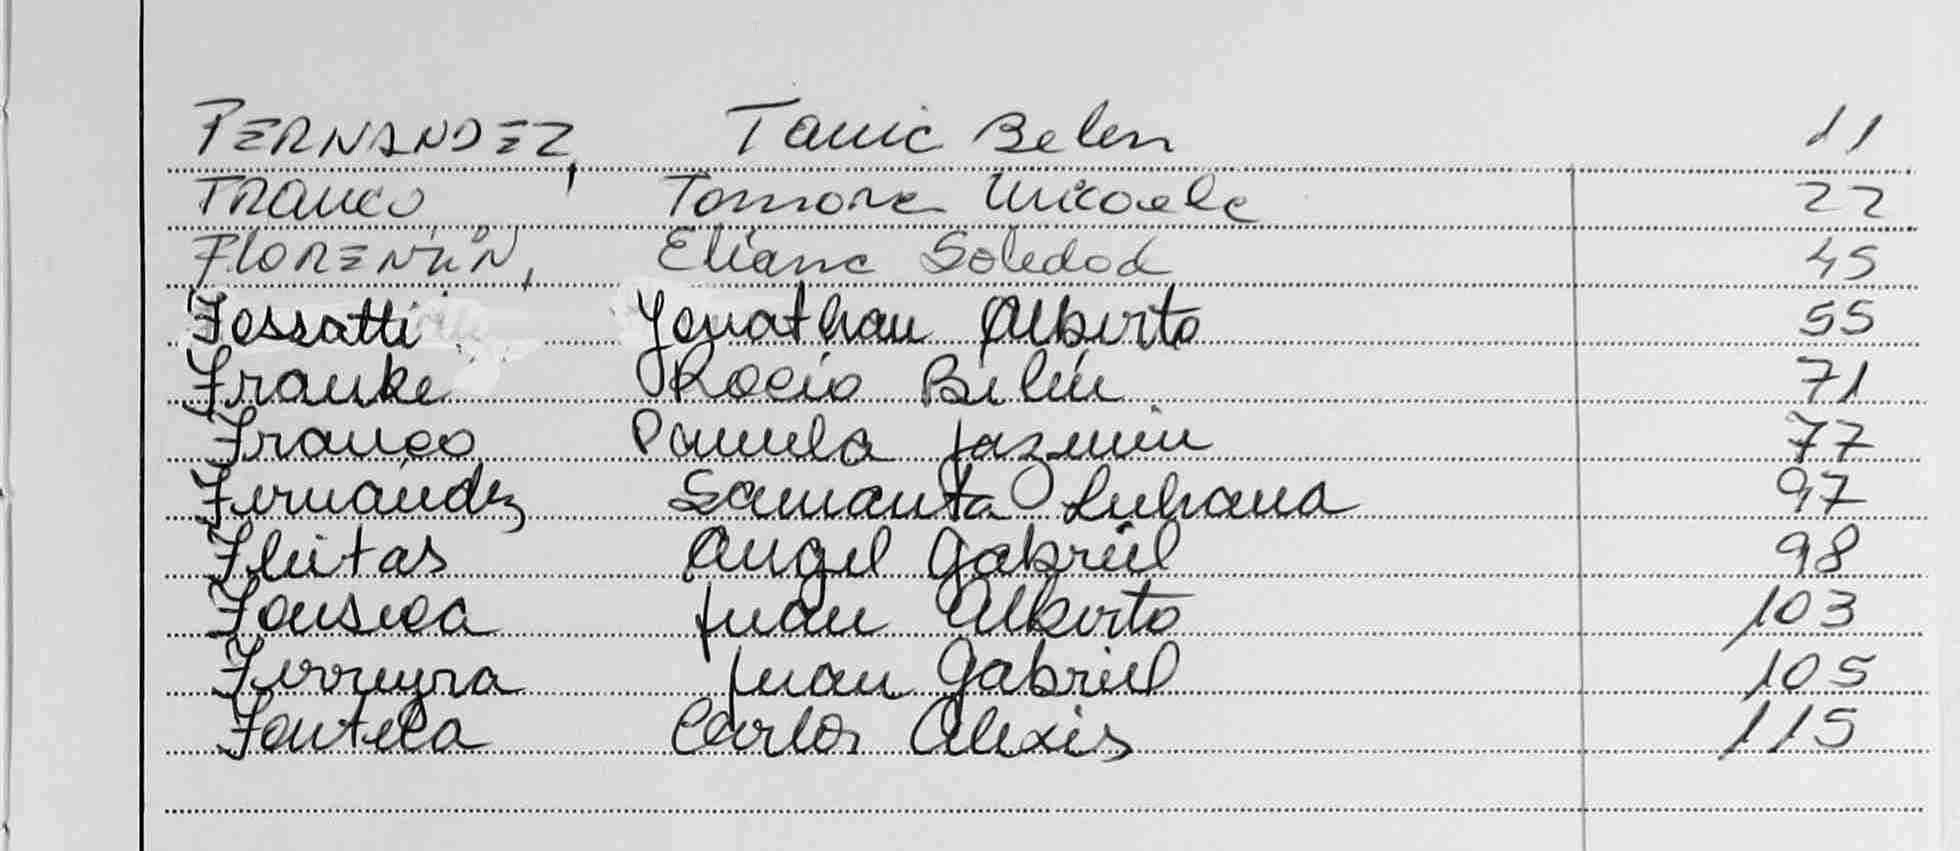 FERNANDEZ, Tania Belen 11
FRANCO Tamara Micaela 22
FLORENTÍN, Eliana Soledad 45
Fossatti Jonathan Alberto 55
Franke Rocío Belén 71
Franco Pamela Jazmín 77
Fernández Samanta Luhana 97
Fleitas Angel Gabriel 98
Fonseca Juan Alberto 103
Ferreyra Juan Gabriel 105
Fontela Carlos Alexis 115